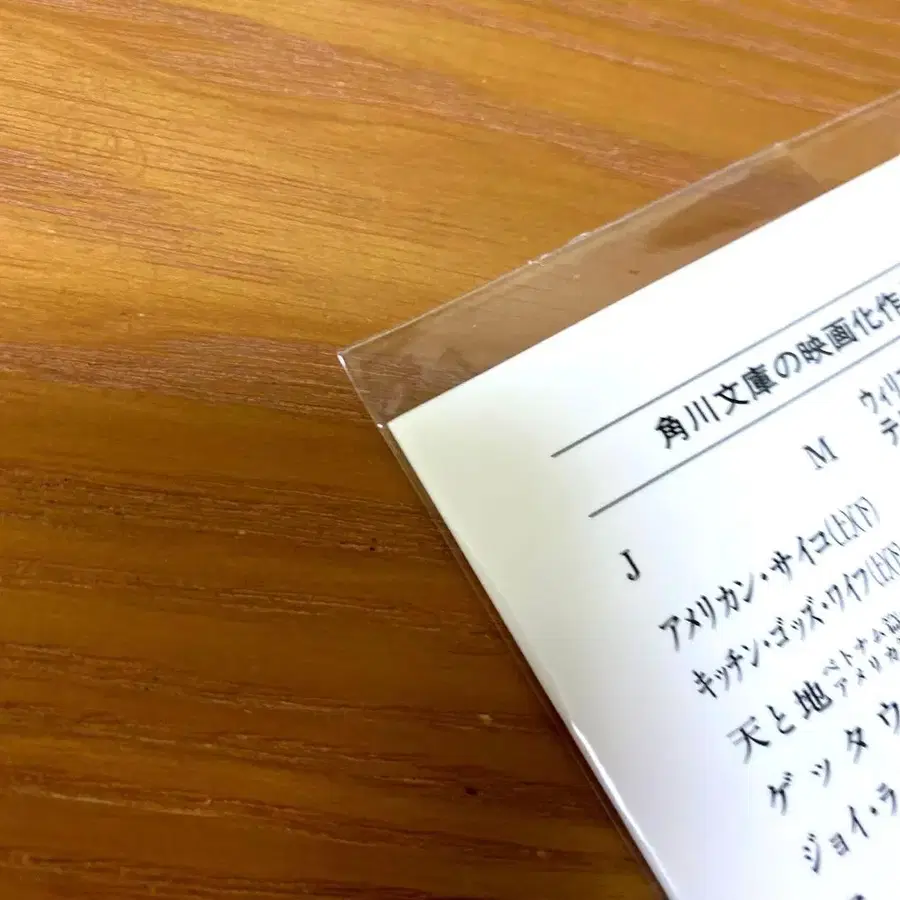 角川文庫の映画化作
M
ウィリ
テ
J
アメリカン・サイコ(上)(下)
キッチン・ゴッズ・ワイフ(上)(下)
天と地 ベトナム
アメリカ
ゲッタウ
ジョイ・ラ